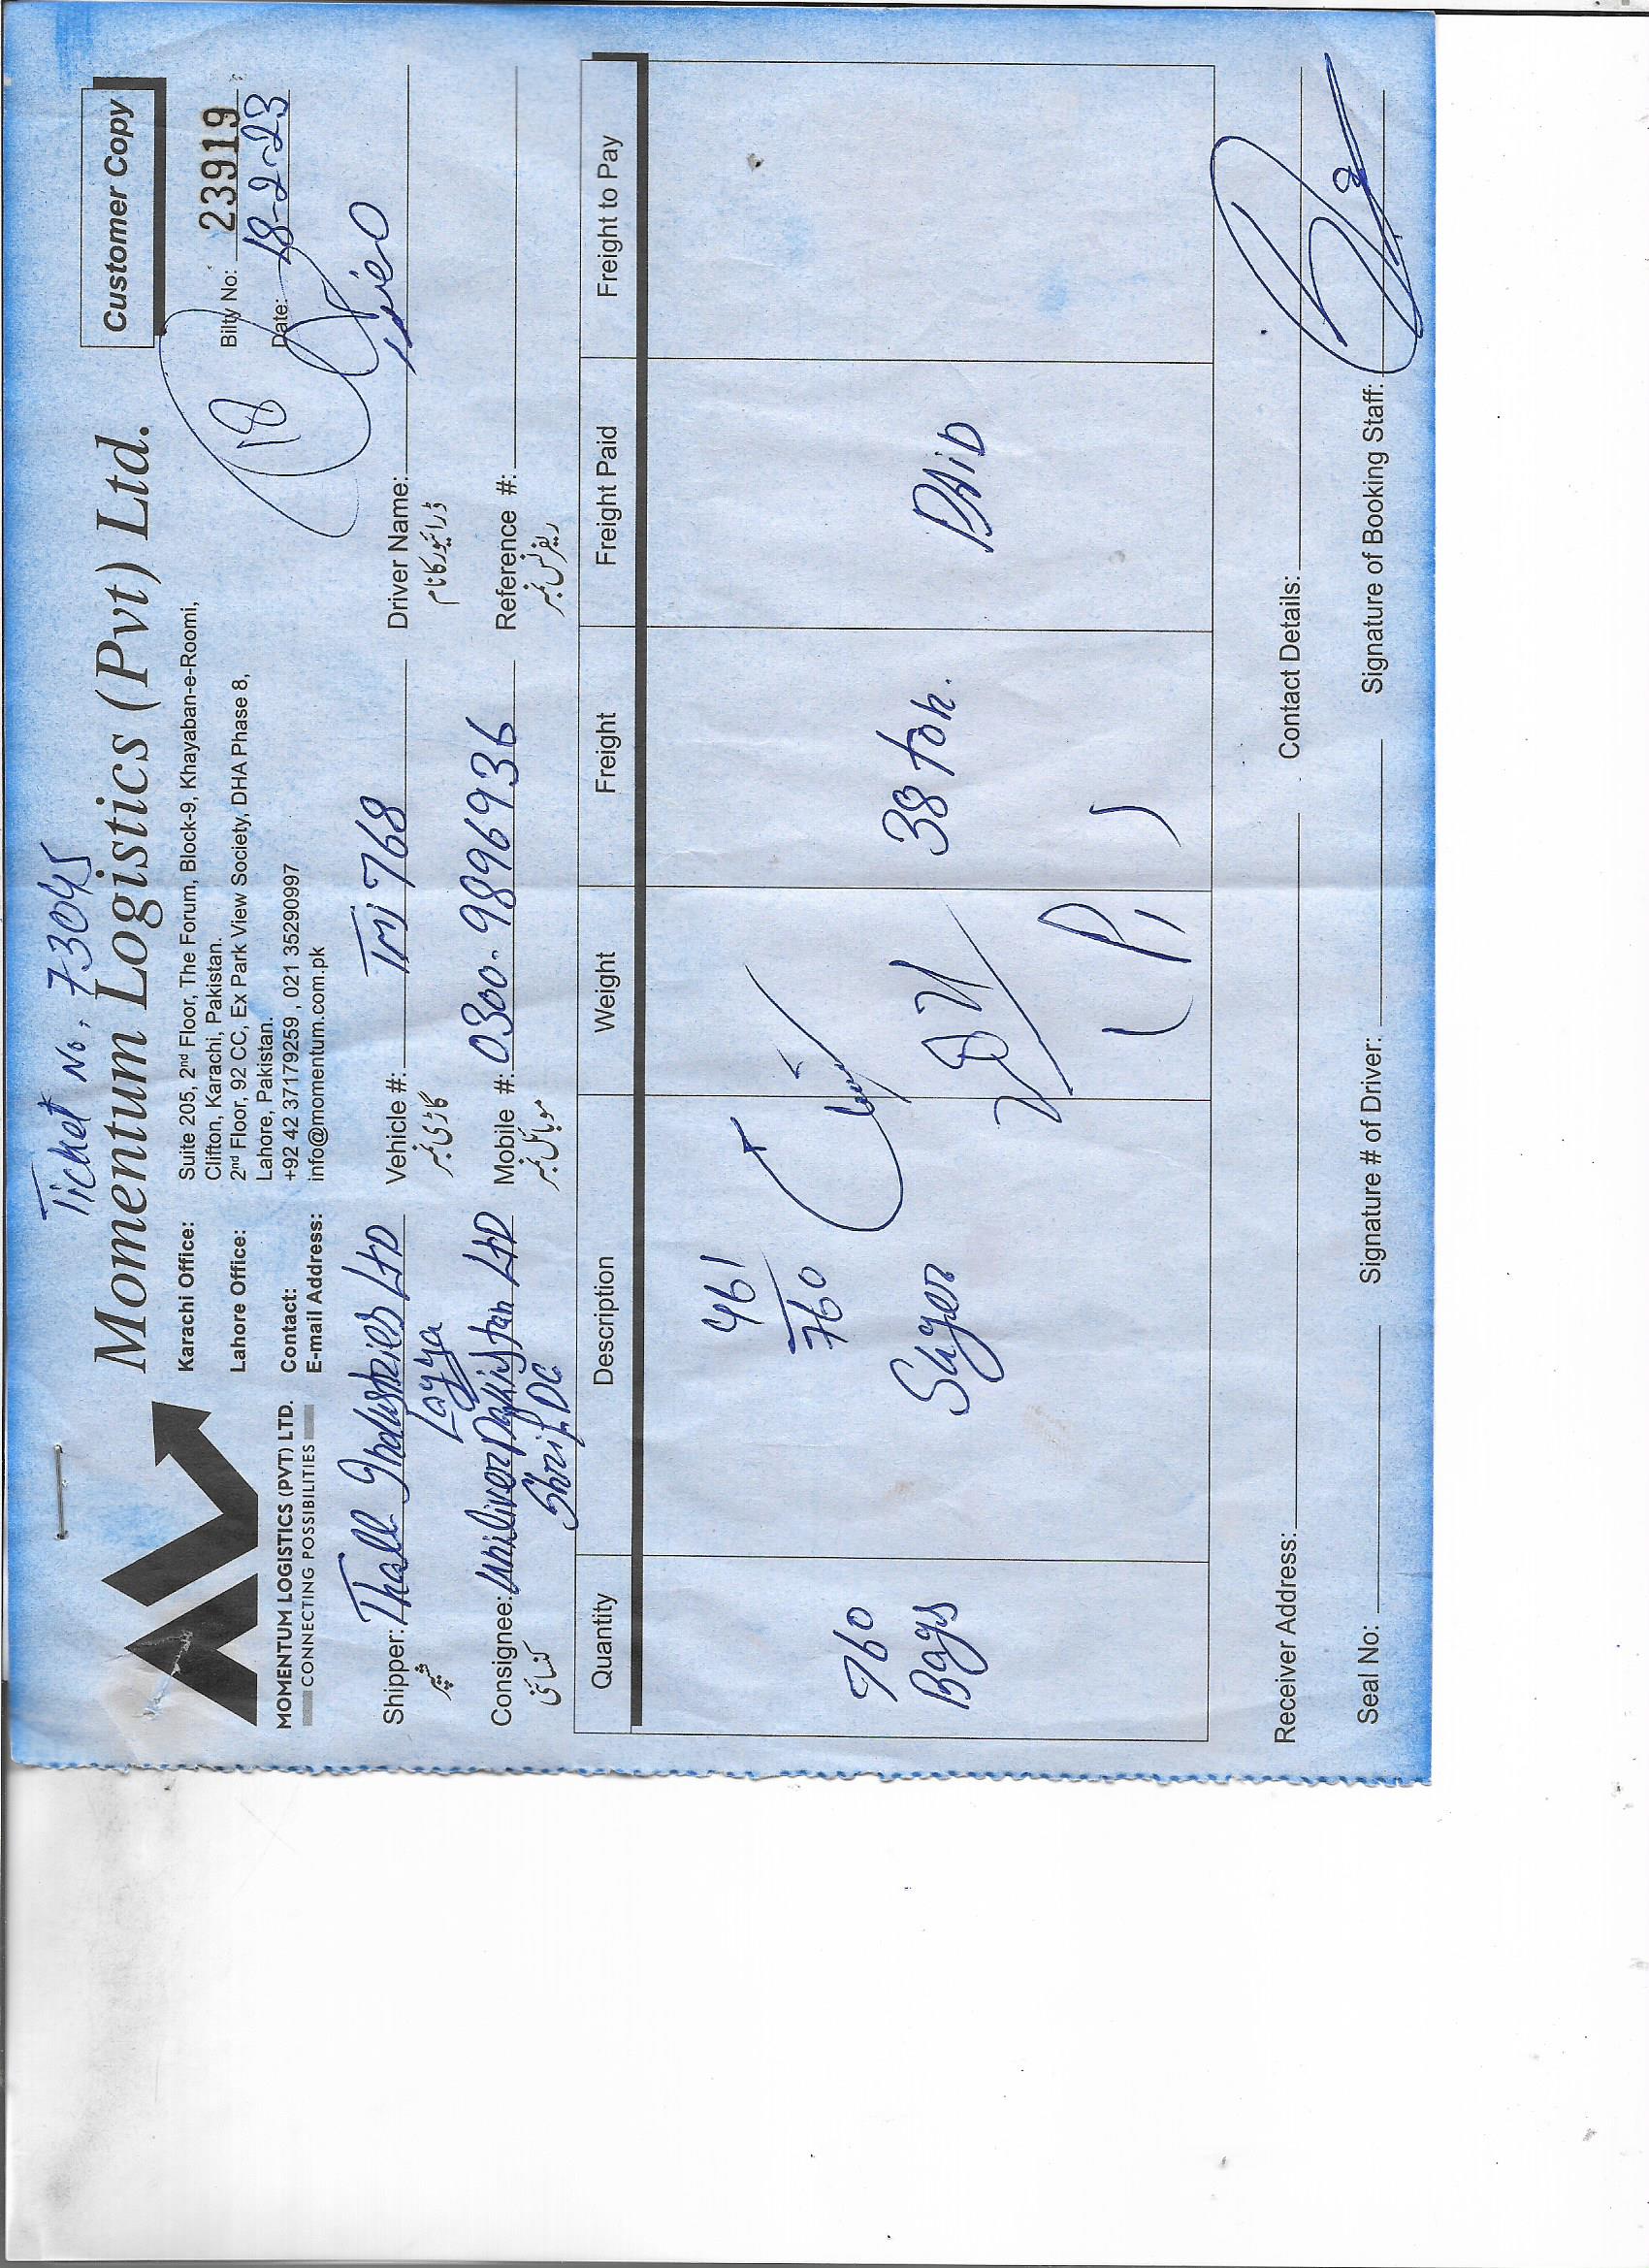 Ticket No. 73045
Momentum Logistics (Pvt) Ltd.
Customer Copy
MOMENTUM LOGISTICS (PVT) LTD.
CONNECTING POSSIBILITIES
Karachi Office: Suite 205, 2nd Floor, The Forum, Block-9, Khayaban-e-Roomi,
Clifton, Karachi, Pakistan.
Lahore Office: 2nd Floor, 92 CC, Ex Park View Society, DHA Phase 8,
Lahore, Pakistan.
Contact: +92 42 37179259 , 021 35290997
E-mail Address: info@momentum.com.pk
Bilty No: 23919
Date: 18-2-23
18
Shipper: Thall Industries LTD
Layya
شپر
Vehicle #: 768
گاڑی نمبر
Driver Name:
ڈرائیور کا نام
Consignee: Uniliver Pakistan LTD
DC
کنسائنی
Mobile #: 0300-9896936
موبائل نمبر
Reference #:
ریفرنس نمبر
Quantity Description Weight Freight Freight Paid Freight to Pay
461
760
760
Bags
Suger
38 ton.
PAiD
Receiver Address: Contact Details:
Seal No: Signature # of Driver: Signature of Booking Staff: